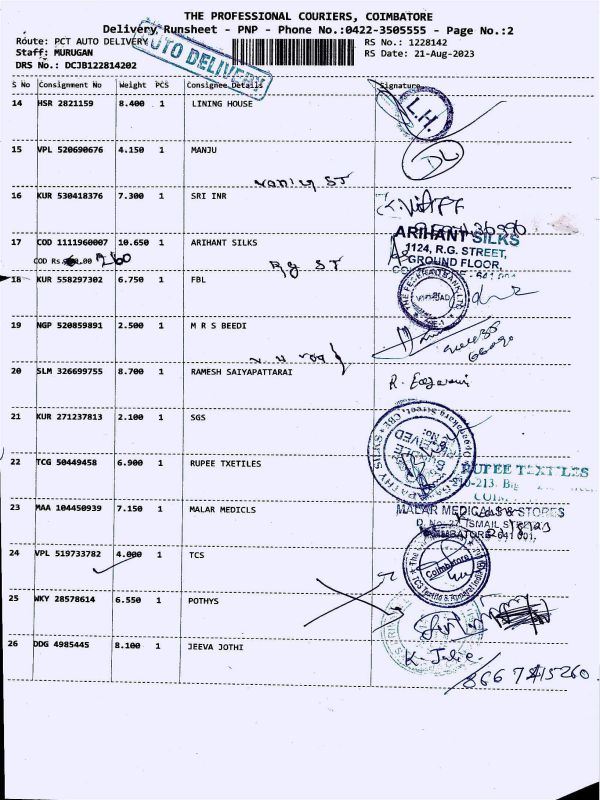 THE PROFESSIONAL COURIERS, COIMBATORE
Delivery Runsheet - PNP - Phone No.:0422-3505555 - Page No.:2
Route: PCT AUTO DELIVERY RS No.: 1228142
Staff: MURUGAN RS Date: 21-Aug-2023
DRS No.: DCJB122814202
AUTO DELIVERY
S No Consignment No Weight PCS Consignee Details Signature
14 HSR 2821159 8.400 1 LINING HOUSE
L.H.
15 VPL 520690676 4.150 1 MANJU
ST
16 KUR 530418376 7.300 1 SRI INR
17 COD 1111960007 10.650 1 ARIHANT SILKS
ARIHANT SILKS
1124, R.G. STREET,
GROUND FLOOR,
COD Rs. .00 260
Rg ST
18 KUR 558297302 6.750 1 FBL
THE FEDERAL BANK LTD
19 NGP 520859891 2.500 1 M R S BEEDI
20 SLM 326699755 8.700 1 RAMESH SAIYAPATTARAI
R.
21 KUR 271237813 2.100 1 SGS
RECEIVED
22 TCG 50449458 6.900 1 RUPEE TXETILES
RUPEE TEXTILES
23 MAA 104450939 7.150 1 MALAR MEDICLS
MALAR MEDICALS & STORES
D. No. 27, ISMAIL
COIMBATORE-641 001.
24 VPL 519733782 4.000 1 TCS
Coimbatore
25 WKY 28578614 6.550 1 POTHYS
26 DDG 4985445 8.100 1 JEEVA JOTHI
K.